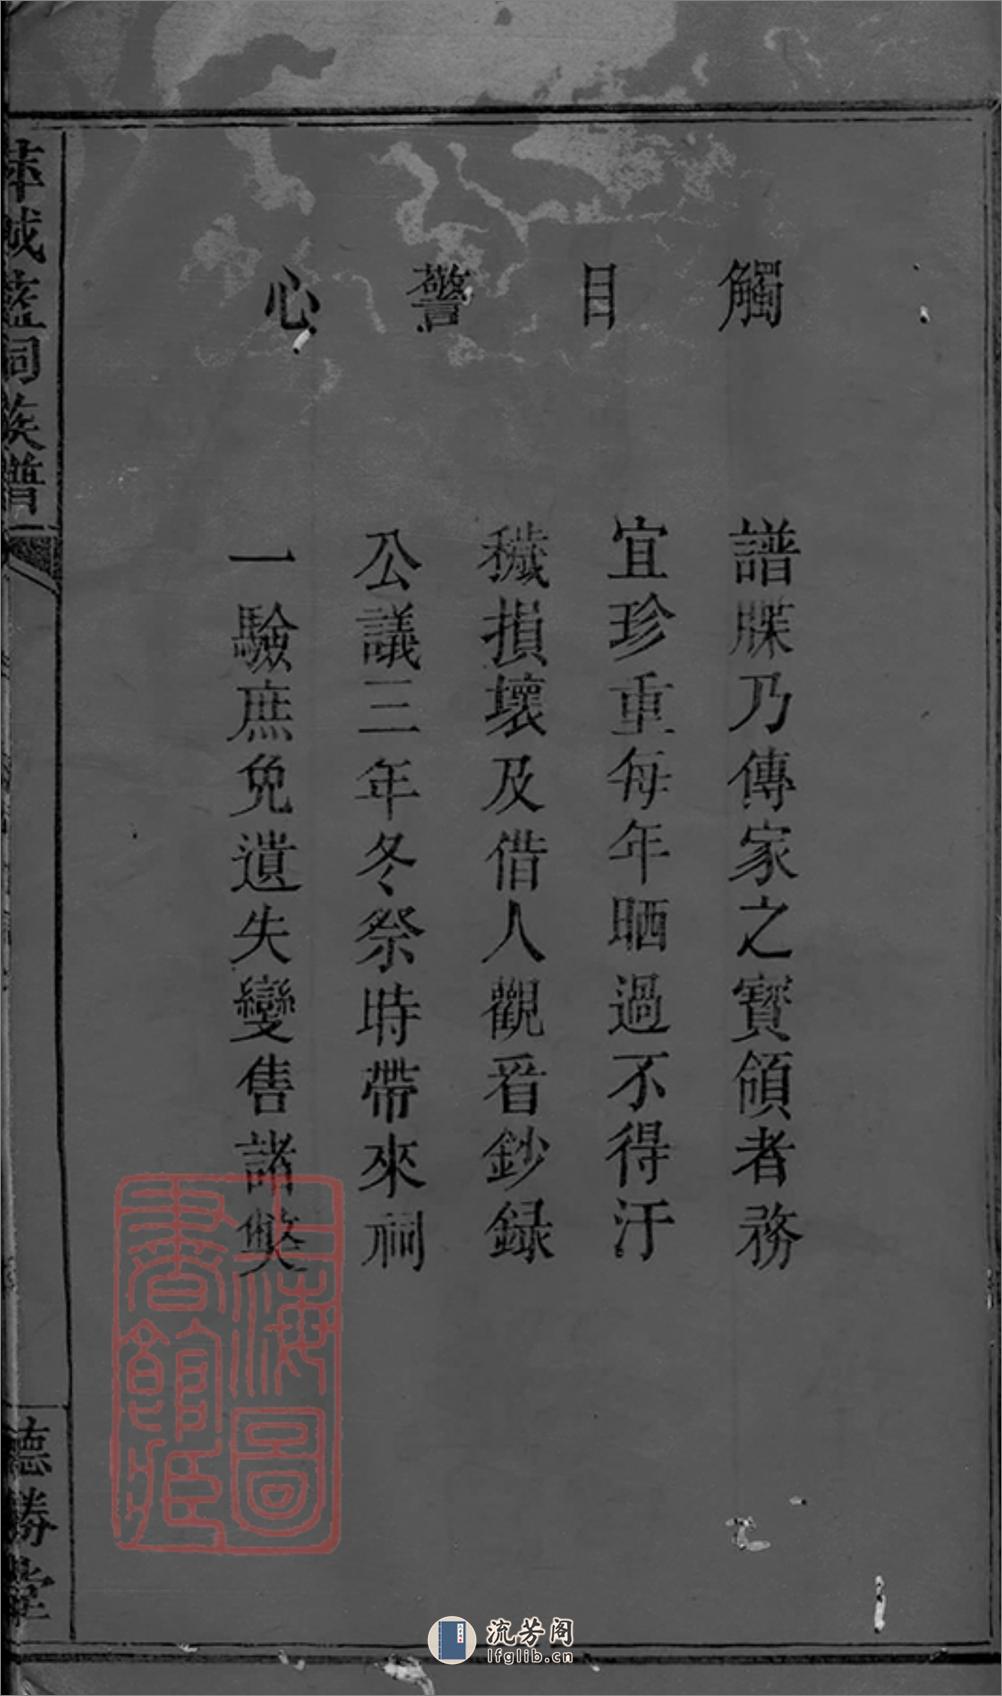 觸目警心
譜牒乃傳家之寳領者務
宜珍重每年晒過不得汙
穢損壞及借人觀看鈔録
公議三年冬祭時帶來祠
一驗庶免遺失變售諸獘
萍城藍祠族譜
德勝堂
上海圖書館藏
流芳阁
lfglib.cn